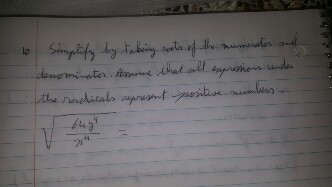 10 Simplify by taking roots of the numerator and
denominator. Assume that all expressions under
the radicals represent positive numbers.
√(64y⁹/x⁴) =